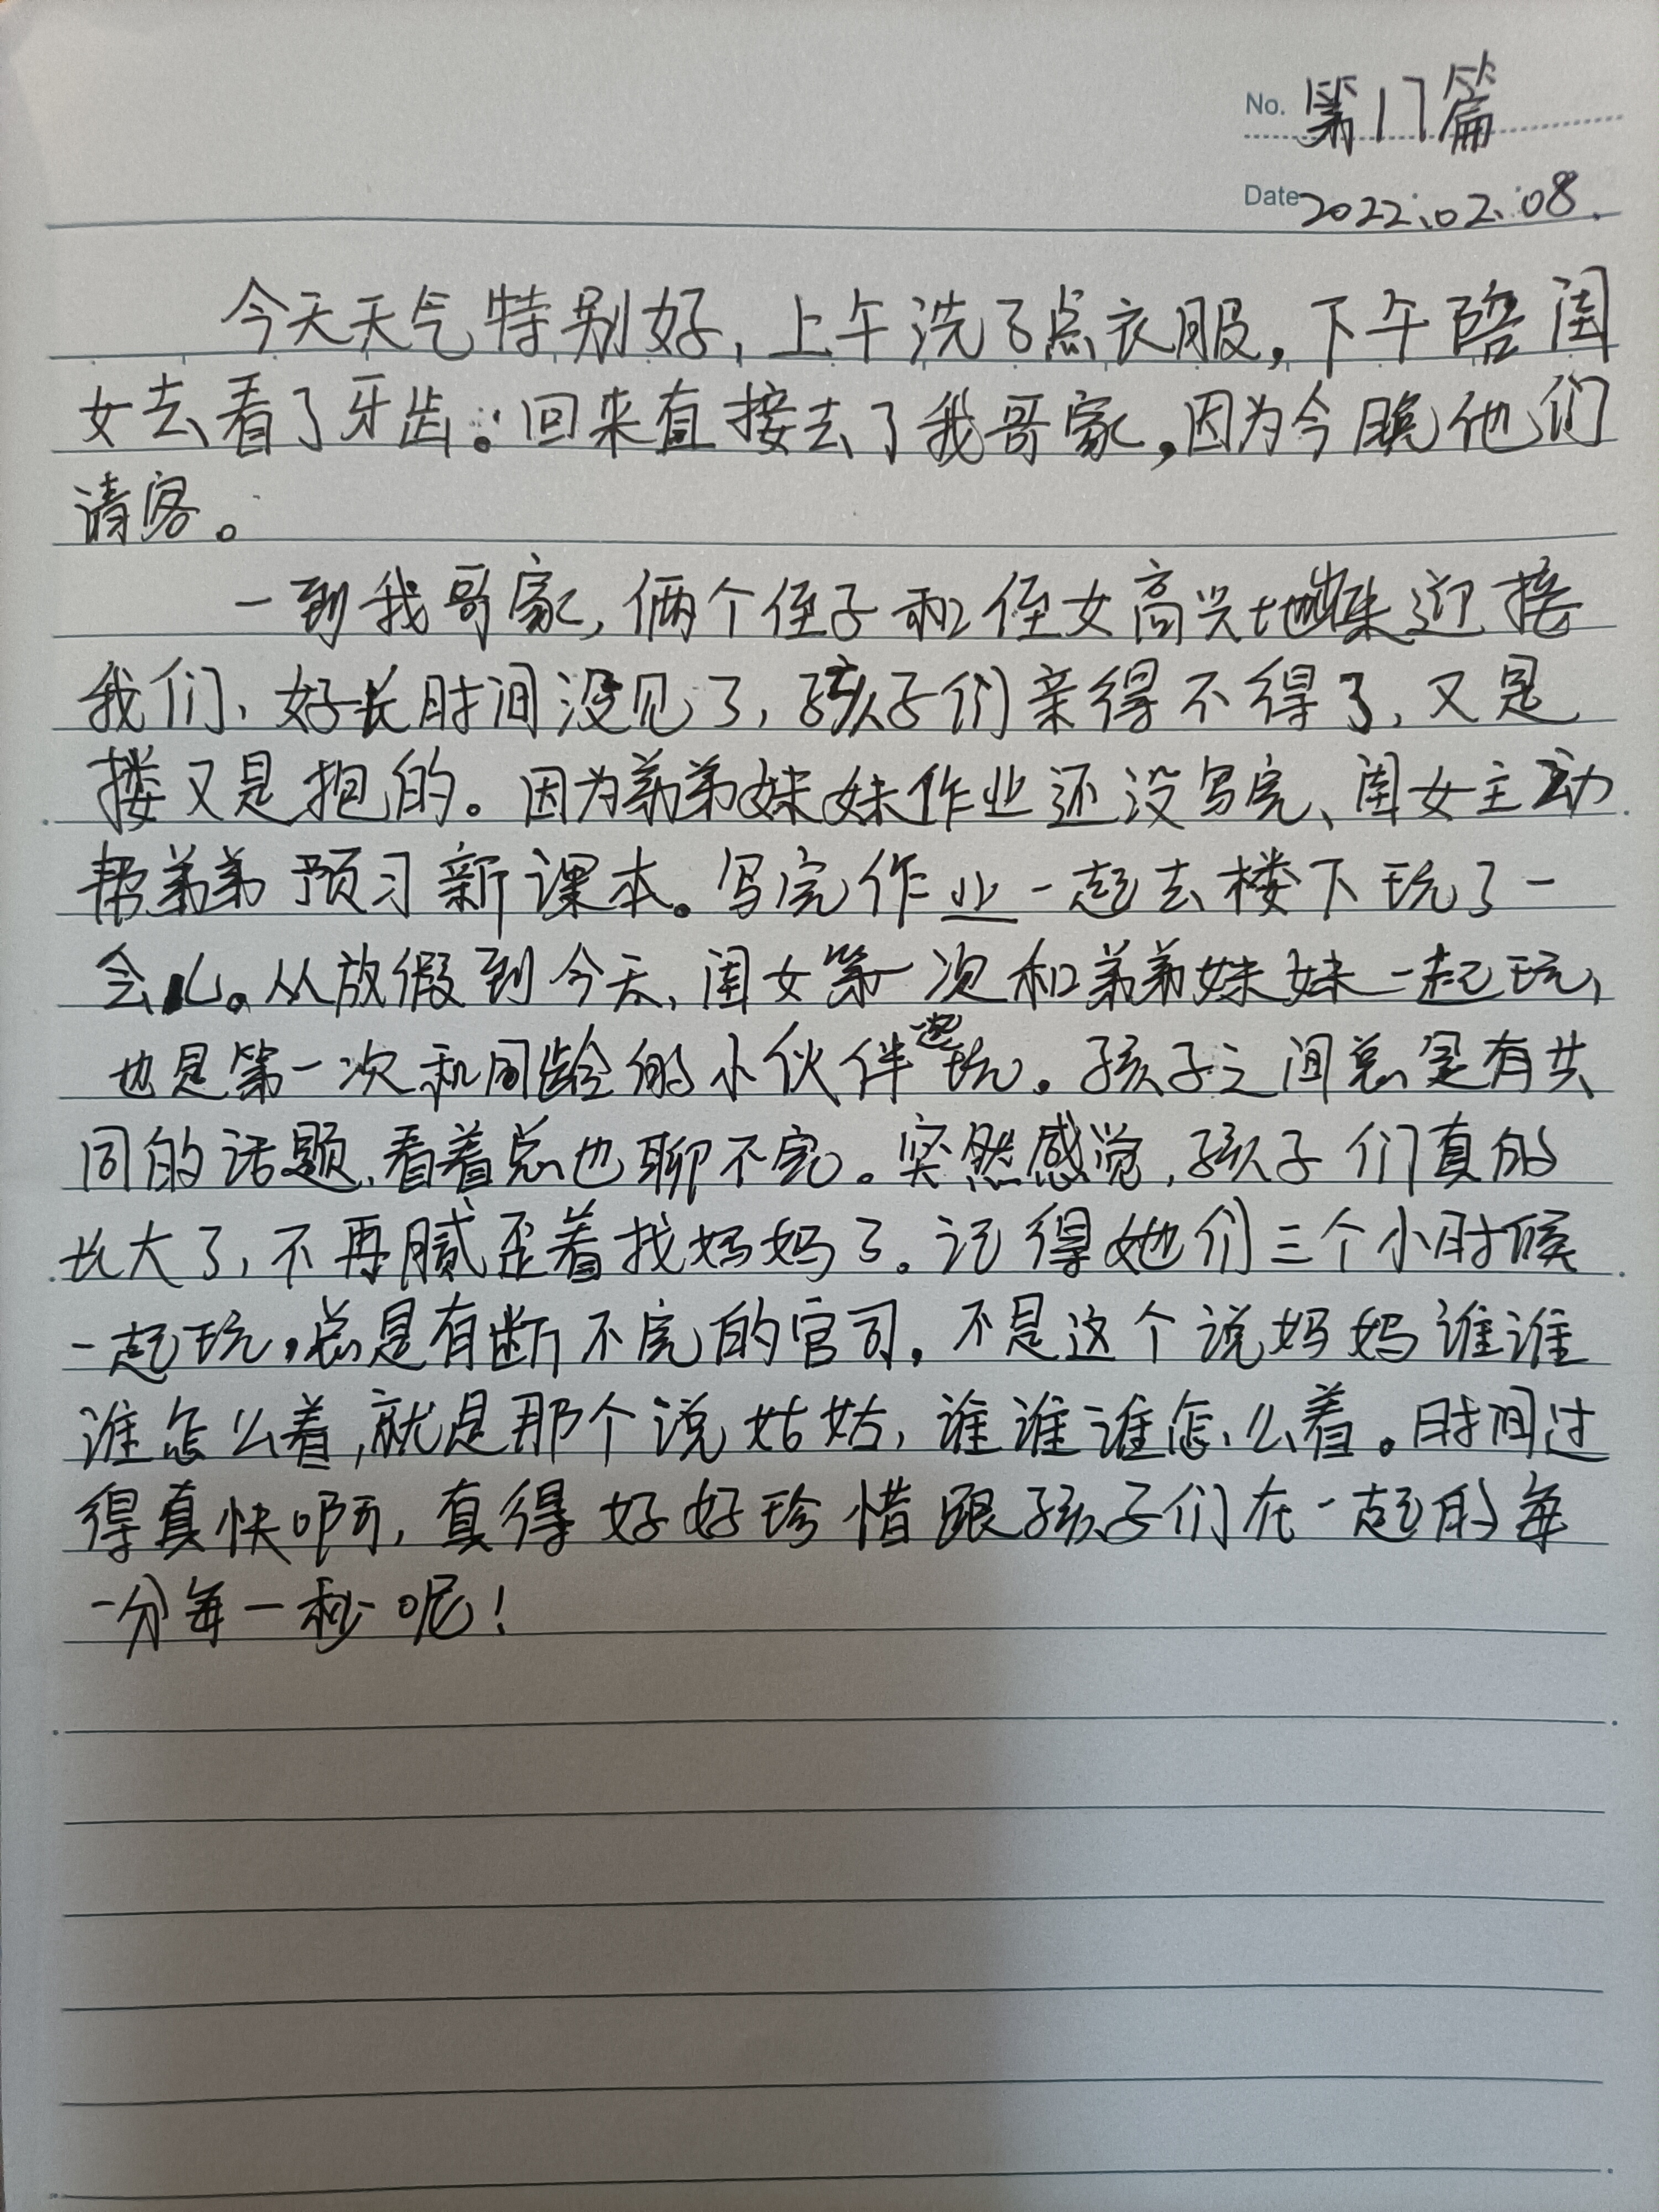 No. 第17篇
Date 2022.02.08.
今天天气特别好，上午洗了点衣服，下午陪闺
女去看了牙齿。回来直接去了我哥家，因为今晚他们
请客。
一到我哥家，俩个侄子和侄女高兴地来迎接
我们、好长时间没见了，孩子们亲得不得了，又是
搂又是抱的。因为弟弟妹妹作业还没写完、闺女主动
帮弟弟预习新课本。写完作业一起去楼下玩了一
会儿。从放假到今天、闺女第一次和弟弟妹妹一起玩，
也是第一次和同龄的小伙伴一起玩。孩子之间总是有共
同的话题、看着总也聊不完。突然感觉，孩子们真的
长大了，不再腻歪着找妈妈了。记得她们三个小时候
一起玩，总是有断不完的官司，不是这个说妈妈谁谁
谁怎么着，就是那个说姑姑，谁谁谁怎么着。时间过
得真快啊，真得好好珍惜跟孩子们在一起的每
一分每一秒呢！